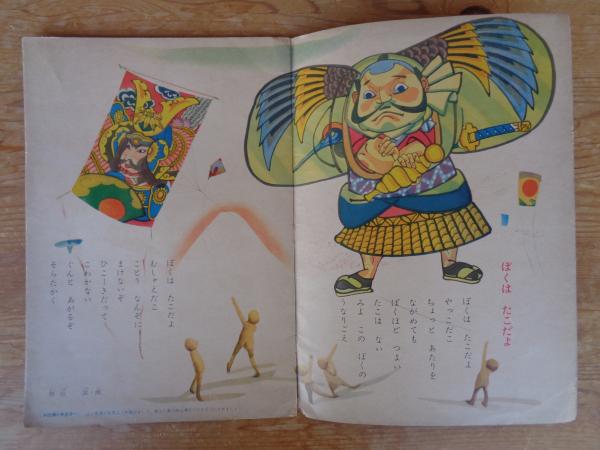 ぼくは たこだよ
ぼくは たこだよ
やっこだこ
ちょっと あたりを
ながめても
ぼくほど つよい
たこは ない
みよ この ぼくの
うなりごえ
ぼくは たこだよ
むしゃえだこ
ことり なんぞに
まけないぞ
ひこーきだって
こわかない
ぐんと あがるぞ
そらたかく